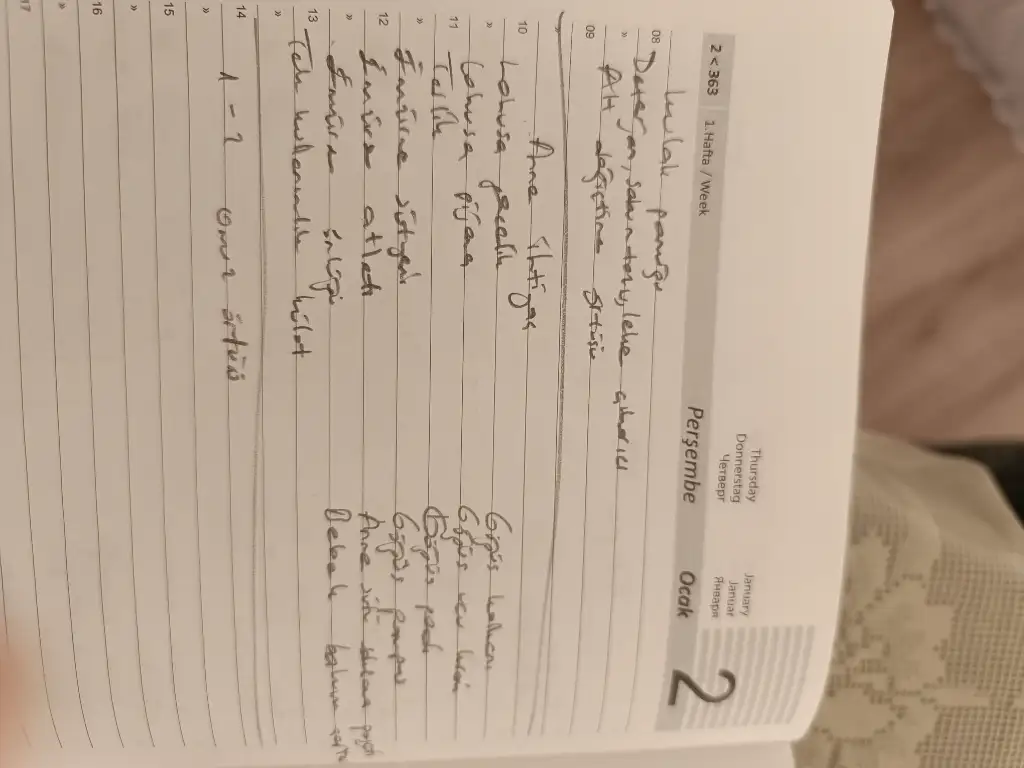 2 < 363
1.Hafta / Week
Perşembe
Thursday
Donnerstag
Четверг
Ocak
January
Januar
Января
2
Kulak pamuğu
08 Deterjan, sabun tozu, leke çıkarıcı
» Alt değiştirme örtüsü
09
»
Anne ihtiyaç
10 Lohusa gecelik
Göğüs kalkanı
» Lohusa
Göğüs ucu kremi
11 Terlik
Göğüs pedi
» Emzirme sütyeni
Göğüs pompası
12 Emzirme atleti
Anne sütü saklama poşeti
» Emzirme önlüğü
Bebek bakım
13 Tek kullanımlık külot
»
14 1 - 2 omuz örtüsü
»
15
»
16
»
17